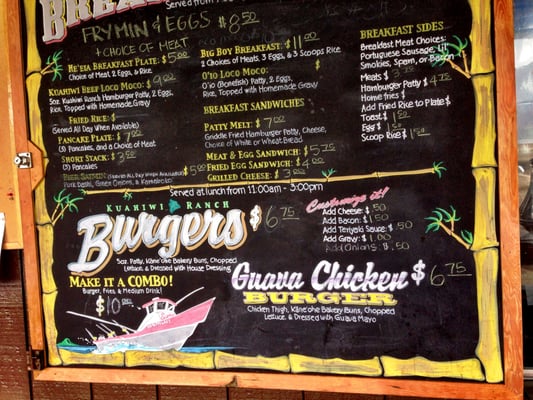 BREA
Served from
FRYMIN & EGGS $8.50
+ CHOICE OF MEAT
HE'EIA BREAKFAST PLATE: $5.00
Choice of Meat, 2 Eggs, & Rice
KUAHIWI BEEF LOCO MOCO: $9.00
5oz. Kuahiwi Ranch Hamburger Patty, 2 Eggs,
Rice, Topped with Homemade Gravy
FRIED RICE: $
(Served All Day When Available)
PANCAKE PLATE: $7.00
(3) Pancakes, and a Choice of Meat
SHORT STACK: $3.50
(3) Pancakes
$5.00
Pork Dashi, Green Onions, & Kamaboko
BIG BOY BREAKFAST: $11.00
2 Choices of Meats, 3 Eggs, & 3 Scoops Rice
O'IO LOCO MOCO: $
O'io (Bonefish) Patty, 2 Eggs,
Rice, Topped with Homemade Gravy
BREAKFAST SANDWICHES
PATTY MELT: $7.00
Griddle Fried Hamburger Patty, Cheese,
Choice of White or Wheat Bread
MEAT & EGG SANDWICH: $5.75
FRIED EGG SANDWICH: $4.00
GRILLED CHEESE: $3.00
BREAKFAST SIDES
Breakfast Meat Choices:
Portuguese Sausage,
Smokies, Spam, or Bacon
Meats $3.75
Hamburger Patty $4.75
Home fries $
Add Fried Rice to Plate $
Toast $1.50
Egg $1.50
Scoop Rice $1.50
Served at lunch from 11:00am - 3:00pm
KUAHIWI RANCH
Burgers $6.75
5oz. Patty, Kāne'ohe Bakery Buns, Chopped
Lettuce & Dressed with House Dressing
MAKE IT A COMBO!
Burger, Fries, & Medium Drink!
$10.00
Customize it!
Add Cheese $.50
Add Bacon $1.50
Add Teriyaki Sauce $.50
Add Gravy $1.00
Add Onions $.50
Guava Chicken $6.75
BURGER
Chicken Thigh, Kāne'ohe Bakery Buns, Chopped
Lettuce, & Dressed with Guava Mayo